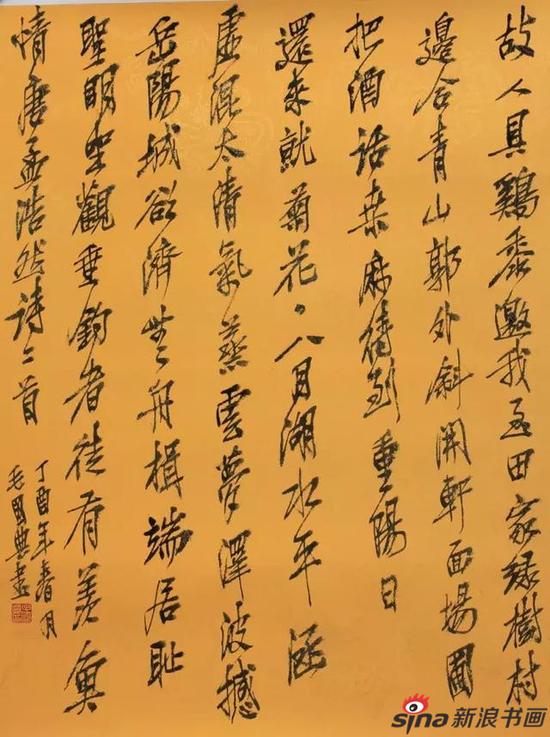 故人具鷄黍邀我至田家緑樹村
邊合青山郭外斜開軒面場圃
把酒話桑麻待到重陽日
還來就菊花、八月湖水平涵
虛混太清氣蒸雲夢澤波撼
岳陽城欲濟無舟楫端居耻
聖明坐觀垂釣者徒有羨魚
情唐孟浩然詩二首
丁酉年春月
毛國典書
sina新浪书画